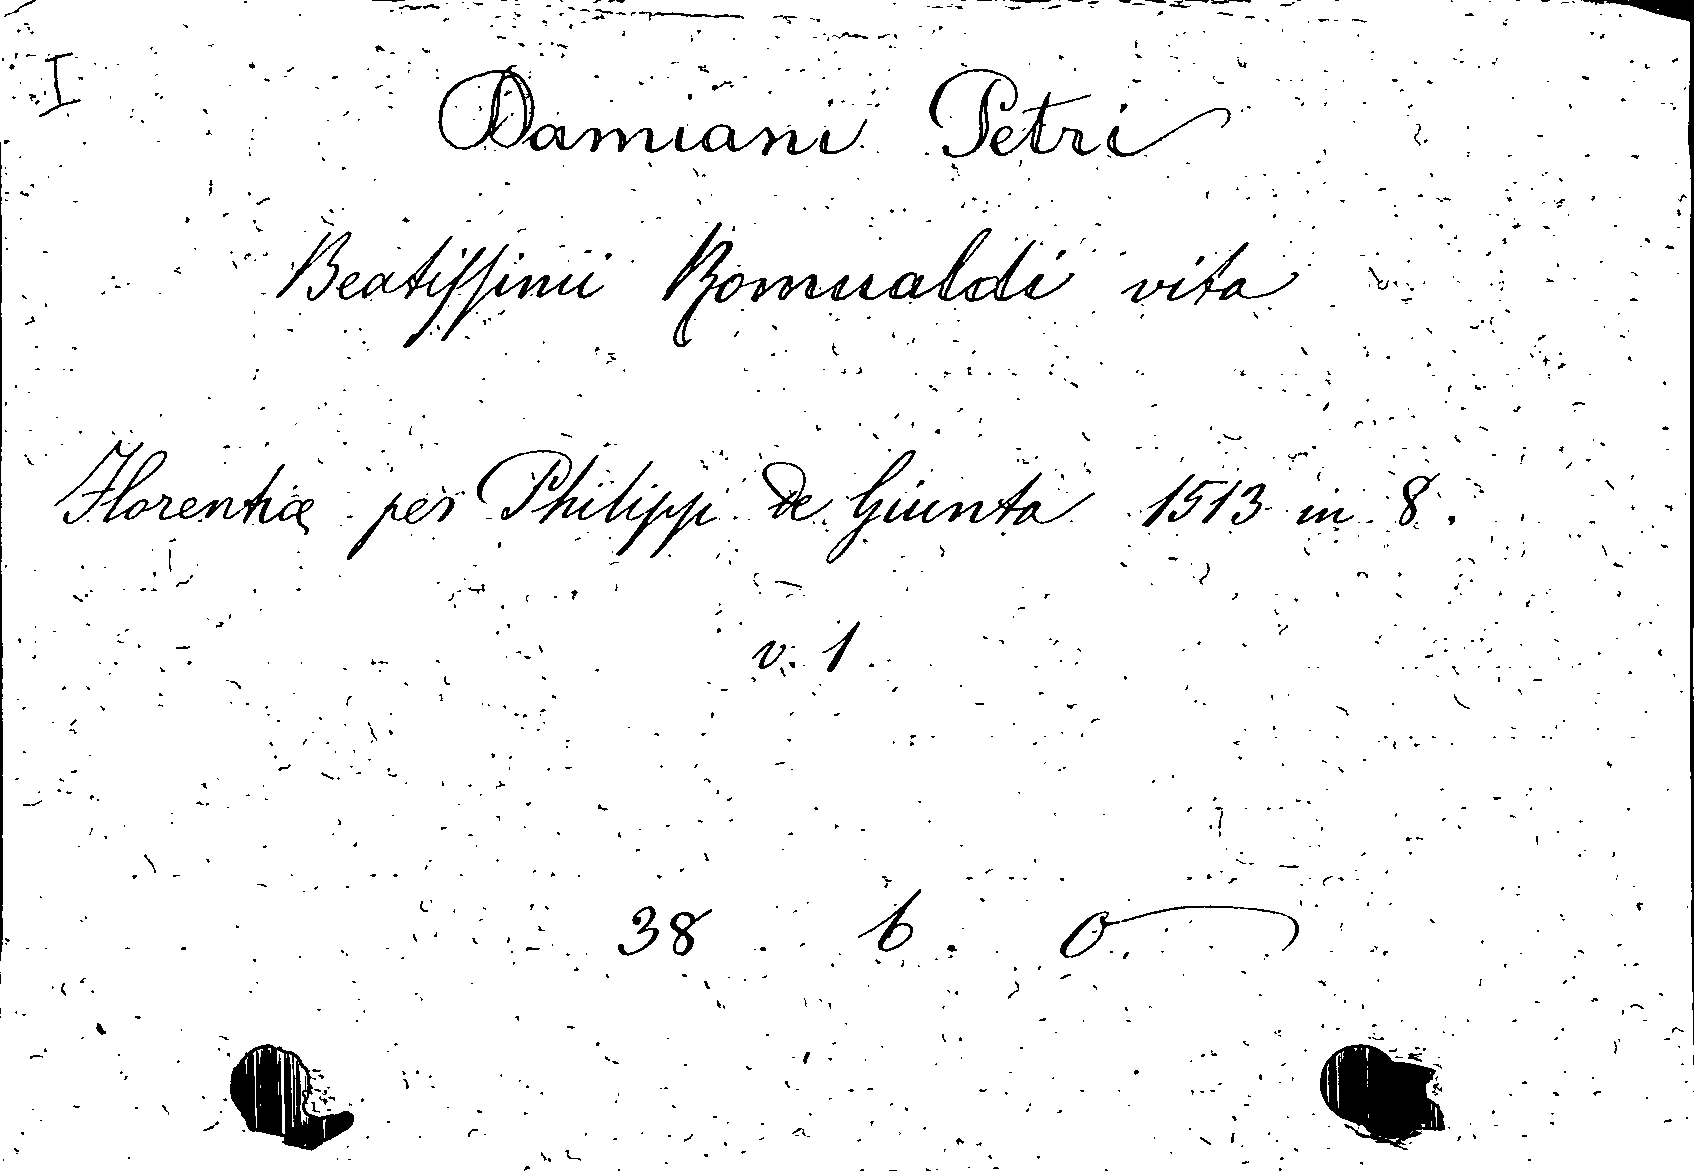 I
Damiani Petri
Beatissimi Romualdi vita
Florentiæ per Philipp de Giunta 1513 in 8.
v. 1
38 6. 0